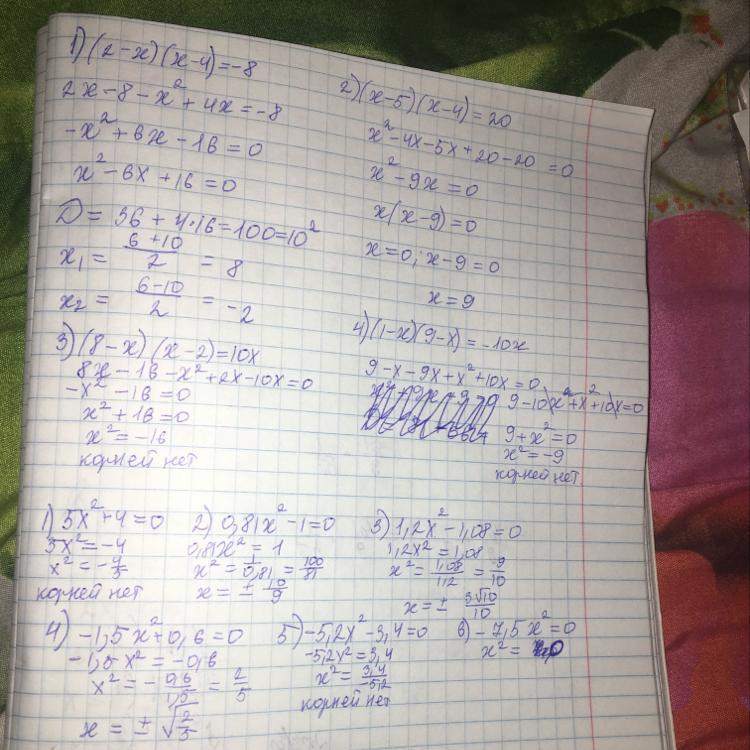 1) (2-x)(x-4)=-8
2x-8-x²+4x=-8
-x²+6x-16=0
x²-6x+16=0
D=36+4·16=100=10²
x₁=(6+10)/2=8
x₂=(6-10)/2=-2
2) (x-5)(x-4)=20
x²-4x-5x+20-20=0
x²-9x=0
x(x-9)=0
x=0; x-9=0
x=9
3) (8-x)(x-2)=10x
8x-16-x²+2x-10x=0
-x²-16=0
x²+16=0
x²=-16
корней нет
4) (1-x)(9-x)=-10x
9-x-9x+x²+10x=0
9+x²=0
x²=-9
корней нет
1) 5x²+4=0
5x²=-4
x²=-4/5
корней нет
2) 0,81x²-1=0
0,81x²=1
x²=1/0,81=100/81
x=±10/9
3) 1,2x²-1,08=0
1,2x²=1,08
x²=1,08/1,2=9/10
x=±3√10/10
4) -1,5x²+0,6=0
-1,5x²=-0,6
x²=-0,6/1,5=2/5
x=±√(2/5)
5) -5,2x²-3,4=0
-5,2x²=3,4
x²=3,4/-5,2
корней нет
6) -7,5x²=0
x²=0